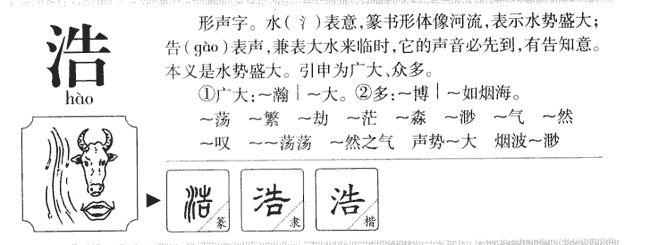 浩
hào
形声字。水(氵)表意,篆书形体像河流,表示水势盛大;
告(gào)表声,兼表大水来临时,它的声音必先到,有告知意。
本义是水势盛大。引申为广大、众多。
①广大:～瀚｜～大。②多:～博｜～如烟海。
～荡 ～繁 ～劫 ～茫 ～森 ～渺 ～气 ～然
～叹 ～～荡荡 ～然之气 声势～大 烟波～渺
浩 篆 浩 隶 浩 楷